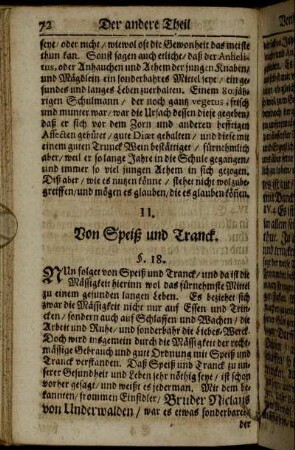 72 Der andere Theil
seye / oder nicht / wiewol oft die Gewonheit das meiste
thun kan. Sonst sagen auch etliche / daß der Anheli-
tus, oder Anhauchen und Athem der jungen Knaben /
und Mägdlein ein sonderbahres Mittel seye / ein ge-
sundes und langes Leben zuerhalten. Einem 80.jäh-
rigen Schulmann / der noch gantz vegetus, frisch
und munter war / war die Ursach dessen diese gegeben /
daß er sich vor dem Zorn und anderen hefftigen
Affecten gehütet / gute Diæt gehalten / und diese mit
einem guten Trunck Wein bestättiget / fürnehmlich
aber / weil er so lange Jahre in die Schule gegangen /
und immer so viel jungen Athem in sich gezogen.
Diß aber / wie es nutzen könne / stehet nicht wol zube-
greiffen / und mögen es glauben / die es glauben können.
II.
Von Speiß und Tranck.
§. 18.
NUn folget von Speiß und Tranck / und da ist die
Mässigkeit hierinn wol das fürnemste Mittel
zu einem gesunden langen Leben. Es beziehet sich
zwar die Mässigkeit nicht nur auf Essen und Trin-
cken / sondern auch auf Schlaffen und Wachen / die
Arbeit und Ruhe / und sonderbahr die Liebes-Werck.
Doch wird insgemein durch die Mässigkeit der recht-
mässige Gebrauch und gute Ordnung mit Speiß und
Tranck verstanden. Daß Speiß und Tranck zu un-
serer Gesundheit und Leben sehr nöthig seye / ist schon
vorher gesagt / und weißt es jederman. Mit dem be-
kannten / frommen Einsidler / Bruder Niclaus
von Underwalden / war es etwas sonderbares /
der